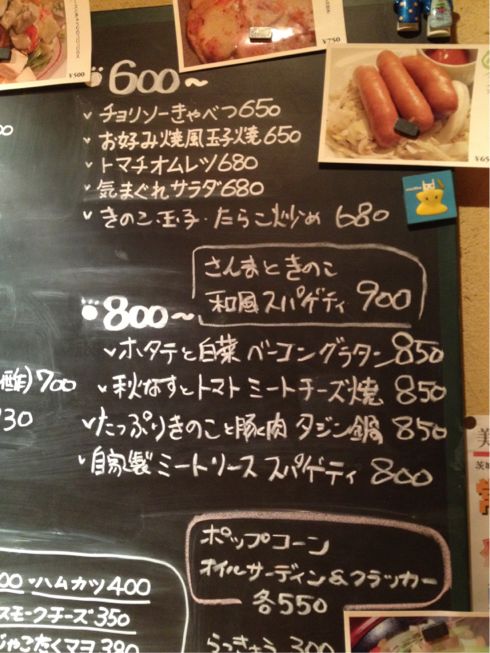 ¥500
¥750
600~
チョリソーきゃべつ650
お好み焼風玉子焼650
トマチオムレツ680
気まぐれサラダ680
きのこ玉子・たらこ炒め 680
さんまときのこ
和風スパゲティ 900
800~
ホタテと白菜 ベーコングラタン 850
酢)700
秋なすとトマト ミートチーズ焼 850
730
たっぷりきのこと豚肉 タジン鍋 850
自家製 ミートソース スパゲティ 800
ポップコーン
オイルサーディン&クラッカー
各550
ハムカツ 400
スモークチーズ 350
じゃこたくマヨ 390
らっきょう 300